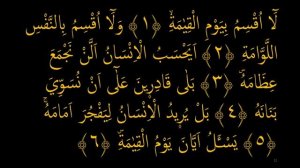 لَّا اُقْسِمُ بِيَوْمِ الْقِيٰمَةِۙ ﴿١﴾ وَلَّا اُقْسِمُ بِالنَّفْسِ
اللَّوَّامَةِ ﴿٢﴾ اَيَحْسَبُ الْاِنْسَانُ اَلَّنْ نَجْمَعَ
عِظَامَهُۜ ﴿٣﴾ بَلٰى قَادِرِينَ عَلٰٓى اَنْ نُسَوِّيَ
بَنَانَهُ ﴿٤﴾ بَلْ يُرِيدُ الْاِنْسَانُ لِيَفْجُرَ اَمَامَهُۚ
﴿٥﴾ يَسْـَٔلُ اَيَّانَ يَوْمُ الْقِيٰمَةِۜ ﴿٦﴾